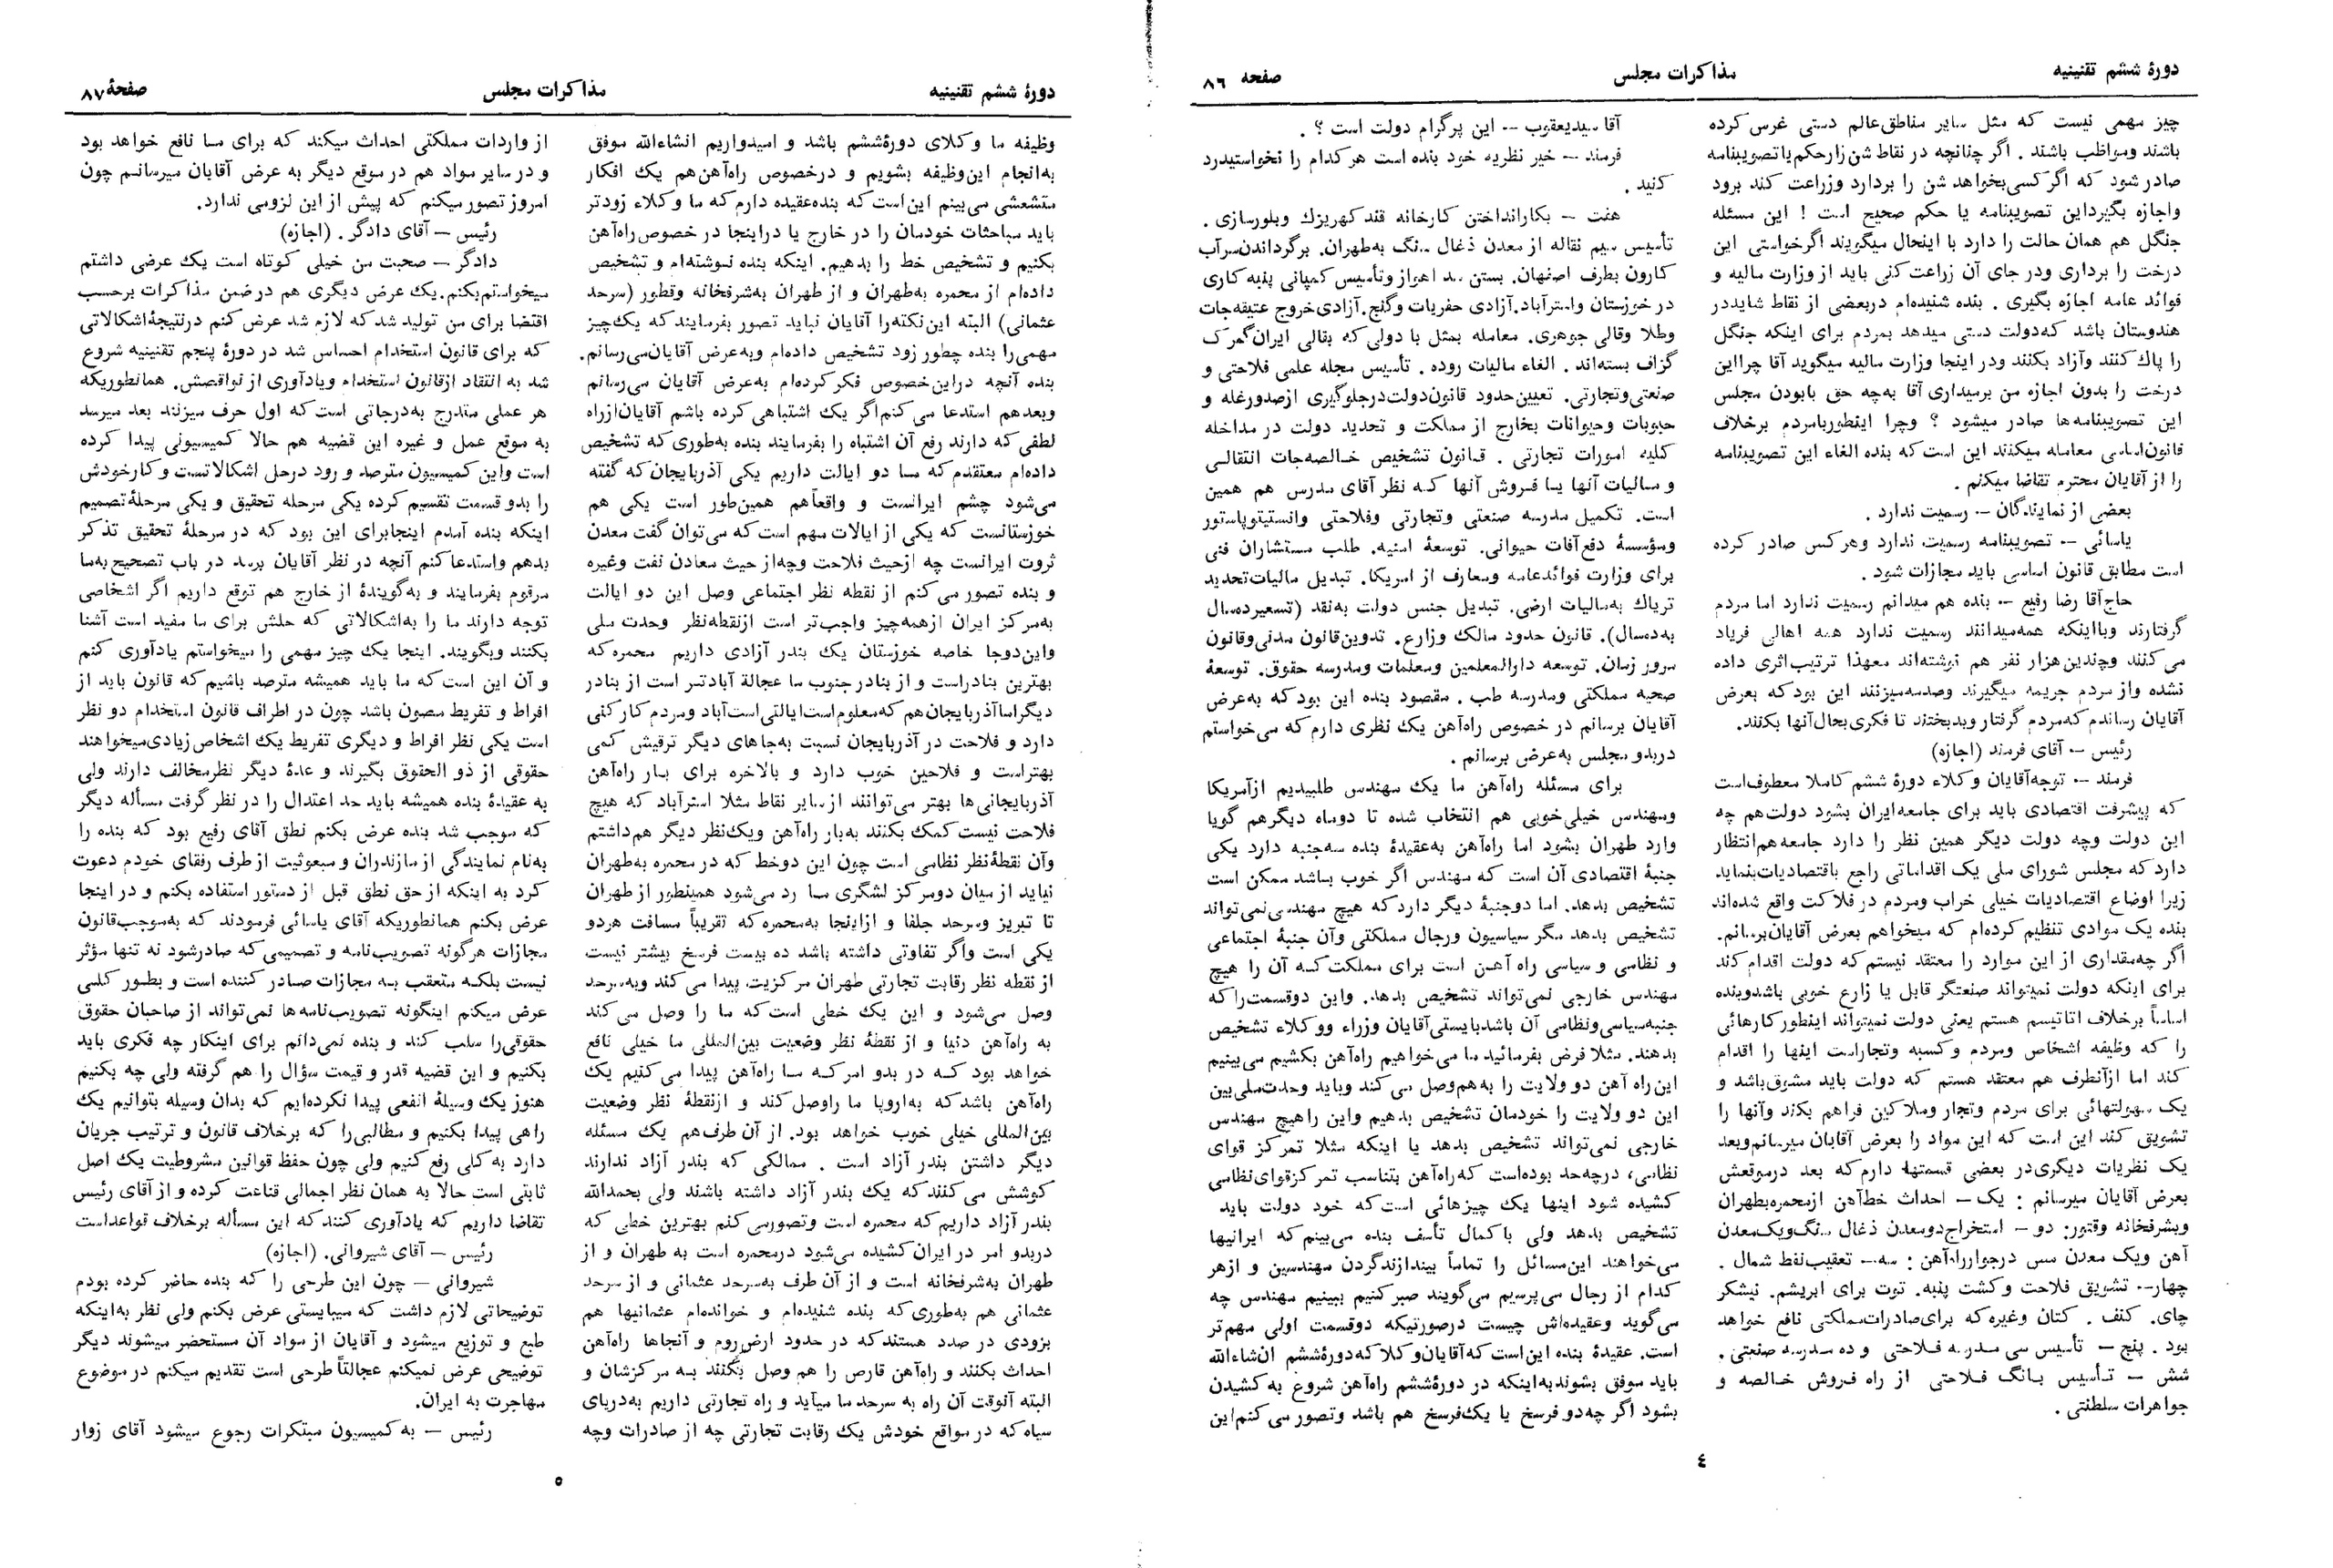 دورهٔ ششم تقنینیه
مذاکرات مجلس
صفحه ۸۶
چیز مهمی نیست که مثل سایر مناطق عالم دستی غرس کرده
باشند ومواظب باشند . اگر چنانچه در نقاط شن زار حکم یا تصویبنامه
صادر شود که اگر کسی بخواهد شن را بردارد وزراعت کند برود
واجازه بگیرد این تصویبنامه یا حکم صحیح است ! این مسئله
جنگل هم همان حالت را دارد با اینحال میگویند اگر خواستی این
درخت را برداری ودر جای آن زراعت کنی باید از وزارت مالیه و
فوائد عامه اجازه بگیری . بنده شنیده‌ام دربعضی از نقاط شاید در
هندوستان باشد که دولت دستی میدهد بمردم برای اینکه جنگل
را پاك کنند وآزاد بکنند ودر اینجا وزارت مالیه میگوید آقا چرا این
درخت را بدون اجازه من برمیداری آقا به چه حق بابودن مجلس
این تصویبنامه‌ها صادر میشود ؟ وچرا اینطور بامردم برخلاف
قانون اساسی معامله میکنند این است که بنده الغاء این تصویبنامه
را از آقایان محترم تقاضا میکنم .
بعضی از نمایندگان -- رسمیت ندارد .
یاسائی -- تصویبنامه رسمیت ندارد وهرکس صادر کرده
است مطابق قانون اساسی باید مجازات شود .
حاج آقا رضا رفیع -- بنده هم میدانم رسمیت ندارد اما مردم
گرفتارند وبااینکه همه میدانند رسمیت ندارد همه اهالی فریاد
می کنند وچندین هزار نفر هم نوشته‌اند معهذا ترتیب اثری داده
نشده واز مردم جریمه میگیرند وصدمه میزنند این بود که بعرض
آقایان رساندم که مردم گرفتار وبدبختند تا فکری بحال آنها بکنند.
رئیس -- آقای فرمند (اجازه)
فرمند -- توجه آقایان وکلاء دورهٔ ششم کاملا معطوف است
که پیشرفت اقتصادی باید برای جامعه ایران بشود دولت هم چه
این دولت وچه دولت دیگر همین نظر را دارد جامعه هم انتظار
دارد که مجلس شورای ملی یک اقداماتی راجع باقتصادیات بنماید
زیرا اوضاع اقتصادیات خیلی خراب ومردم در فلاکت واقع شده‌اند
بنده یک موادی تنظیم کرده‌ام که میخواهم بعرض آقایان برسانم.
اگر چه مقداری از این موارد را معتقد نیستم که دولت اقدام کند
برای اینکه دولت نمیتواند صنعتگر قابل یا زارع خوبی باشد وبنده
اساساً برخلاف اتاتیسم هستم یعنی دولت نمیتواند اینطور کارهائی
را که وظیفه اشخاص ومردم وکسبه وتجار است اینها را اقدام
کند اما از آنطرف هم معتقد هستم که دولت باید مشوق باشد و
یک سهولتهائی برای مردم وتجار وملاکین فراهم بکند وآنها را
تشویق کند این است که این مواد را بعرض آقایان میرسانم وبعد
یک نظریات دیگری در بعضی قسمتها دارم که بعد درموقعش
بعرض آقایان میرسانم : یک – احداث خط آهن ازمحمره بطهران
وبشرفخانه وقتور: دو – استخراج دو معدن ذغال سنگ ویک معدن
آهن ویک معدن مس درجوار راه آهن : سه -- تعقیب نفط شمال .
چهار-- تشویق فلاحت وکشت پنبه. توت برای ابریشم. نیشکر
چای. کنف . کتان وغیره که برای صادرات مملکتی نافع خواهد
بود . پنج – تأسیس سی مدرسه فلاحتی و ده مدرسه صنعتی .
شش – تأسیس بانگ فلاحتی از راه فروش خالصه و
جواهرات سلطنتی .
آقا سید یعقوب -- این پرگرام دولت است ؟ .
فرمند – خیر نظریه خود بنده است هرکدام را نخواستید رد
کنید .
هفت – بکار انداختن کارخانه قند کهریزك وبلورسازی .
تأسیس سیم نقاله از معدن ذغال سنگ به طهران. برگرداندن سرآب
کارون بطرف اصفهان. بستن سد اهواز وتأسیس کمپانی پنبه کاری
در خوزستان واسترآباد. آزادی حفریات وگنج. آزادی خروج عتیقه جات
وطلا وقالی جوهری. معامله بمثل با دولی که بقالی ایران گمرک
گزاف بسته‌اند . الغاء مالیات روده . تأسیس مجله علمی فلاحتی و
صنعتی وتجارتی. تعیین حدود قانون دولت درجلوگیری ازصدور غله و
حبوبات وحیوانات بخارج از مملکت و تحدید دولت در مداخله
کلیه امورات تجارتی . قانون تشخیص خالصه جات انتقالی
و مالیات آنها یا فروش آنها که نظر آقای مدرس هم همین
است. تکمیل مدرسه صنعتی وتجارتی وفلاحتی وانستیتوپاستور
ومؤسسهٔ دفع آفات حیوانی. توسعهٔ امنیه. طلب مستشاران فنی
برای وزارت فوائد عامه ومعارف از امریکا. تبدیل مالیات تحدید
تریاك به مالیات ارضی. تبدیل جنس دولت به نقد (تسعیر ده سال
به ده سال). قانون حدود مالک وزارع. تدوین قانون مدنی وقانون
مرور زمان. توسعه دارالمعلمین ومعلمات ومدرسه حقوق. توسعهٔ
صحیه مملکتی ومدرسه طب . مقصود بنده این بود که به عرض
آقایان برسانم در خصوص راه آهن یک نظری دارم که می خواستم
دربدو مجلس به عرض برسانم .
برای مسئله راه آهن ما یک مهندس طلبیدیم ازآمریکا
ومهندس خیلی خوبی هم انتخاب شده تا دوماه دیگر هم گویا
وارد طهران بشود اما راه آهن به عقیدهٔ بنده سه جنبه دارد یکی
جنبهٔ اقتصادی آن است که مهندس اگر خوب باشد ممکن است
تشخیص بدهد. اما دوجنبهٔ دیگر دارد که هیچ مهندسی نمی تواند
تشخیص بدهد مگر سیاسیون ورجال مملکتی وآن جنبهٔ اجتماعی
و نظامی و سیاسی راه آهن است برای مملکت که آن را هیچ
مهندس خارجی نمی تواند تشخیص بدهد. واین دو قسمت را که
جنبه سیاسی ونظامی آن باشد بایستی آقایان وزراء ووکلاء تشخیص
بدهند. مثلا فرض بفرمائید ما می خواهیم راه آهن بکشیم می بینیم
این راه آهن دو ولایت را به هم وصل می کند وباید وحدت ملی بین
این دو ولایت را خودمان تشخیص بدهیم واین را هیچ مهندس
خارجی نمی تواند تشخیص بدهد یا اینکه مثلا تمرکز قوای
نظامی، درچه حد بوده است که راه آهن بتناسب تمرکز قوای نظامی
کشیده شود اینها یک چیزهائی است که خود دولت باید
تشخیص بدهد ولی با کمال تأسف بنده می بینم که ایرانیها
می خواهند این مسائل را تماماً بیندازند گردن مهندسین و ازهر
کدام از رجال می پرسیم می گویند صبر کنیم ببینیم مهندس چه
می گوید وعقیده‌اش چیست درصورتیکه دوقسمت اولی مهم تر
است. عقیدهٔ بنده این است که آقایان وکلا که دورهٔ ششم ان شاءالله
باید موفق بشوند به اینکه در دورهٔ ششم راه آهن شروع به کشیدن
بشود اگر چه دو فرسخ یا یک فرسخ هم باشد وتصور می کنم این
٤
دورهٔ ششم تقنینیه
مذاکرات مجلس
صفحهٔ ۸۷
وظیفه ما وکلای دورهٔ ششم باشد و امیدواریم انشاءالله موفق
به انجام این وظیفه بشویم و درخصوص راه آهن هم یک افکار
متشعشی می بینم این است که بنده عقیده دارم که ما وکلاء زودتر
باید مباحثات خودمان را در خارج یا در اینجا در خصوص راه آهن
بکنیم و تشخیص خط را بدهیم. اینکه بنده نوشته‌ام و تشخیص
داده‌ام از محمره به طهران و از طهران به شرفخانه وقطور (سرحد
عثمانی) البته این نکته را آقایان نباید تصور بفرمایند که یک چیز
مهمی را بنده چطور زود تشخیص داده‌ام وبه عرض آقایان می رسانم.
بنده آنچه دراین خصوص فکر کرده‌ام به عرض آقایان می رسانم
وبعد هم استدعا می کنم اگر یک اشتباهی کرده باشم آقایان از راه
لطفی که دارند رفع آن اشتباه را بفرمایند بنده به طوری که تشخیص
داده‌ام معتقدم که ما دو ایالت داریم یکی آذربایجان که گفته
می شود چشم ایرانست و واقعاً هم همین طور است یکی هم
خوزستانست که یکی از ایالات مهم است که می توان گفت معدن
ثروت ایرانست چه ازحیث فلاحت وچه از حیث معادن نفت وغیره
و بنده تصور می کنم از نقطه نظر اجتماعی وصل این دو ایالت
به مرکز ایران ازهمه چیز واجب تر است ازنقطه نظر وحدت ملی
واین دوجا خاصه خوزستان یک بندر آزادی داریم محمره که
بهترین بنادر است و از بنادر جنوب ما عجالة آبادتر است از بنادر
دیگر اما آذربایجان هم که معلوم است ایالتی است آباد ومردم کارکنی
دارد و فلاحت در آذربایجان نسبت به جاهای دیگر ترقیش کمی
بهتر است و فلاحین خوب دارد و بالاخره برای بار راه آهن
آذربایجانی ها بهتر می توانند از سایر نقاط مثلا استرآباد که هیچ
فلاحت نیست کمک بکنند به بار راه آهن ویک نظر دیگر هم داشتم
وآن نقطهٔ نظر نظامی است چون این دوخط که در محمره به طهران
نیاید از میان دو مرکز لشگری ما رد می شود همینطور از طهران
تا تبریز وسرحد جلفا و ازاینجا به محمره که تقریباً مسافت هر دو
یکی است واگر تفاوتی داشته باشد ده بیست فرسخ بیشتر نیست
از نقطه نظر رقابت تجارتی طهران مرکزیت پیدا می کند وبه سرحد
وصل می شود و این یک خطی است که ما را وصل می کند
به راه آهن دنیا و از نقطهٔ نظر وضعیت بین‌المللی ما خیلی نافع
خواهد بود که در بدو امر که ما راه آهن پیدا می کنیم یک
راه آهن باشد که به اروپا ما را وصل کند و ازنقطهٔ نظر وضعیت
بین‌المللی خیلی خوب خواهد بود. از آن طرف هم یک مسئله
دیگر داشتن بندر آزاد است . ممالکی که بندر آزاد ندارند
کوشش می کنند که یک بندر آزاد داشته باشند ولی بحمدالله
بندر آزاد داریم که محمره است وتصور می کنم بهترین خطی که
دربدو امر در ایران کشیده می شود درمحمره است به طهران و از
طهران به شرفخانه است و از آن طرف به سرحد عثمانی و از سرحد
عثمانی هم به طوری که بنده شنیده‌ام و خوانده‌ام عثمانیها هم
بزودی در صدد هستند که در حدود ارض روم و آنجاها راه آهن
احداث بکنند و راه آهن قارص را هم وصل بکنند به مرکزشان و
البته آنوقت آن راه به سرحد ما میآید و راه تجارتی داریم به دریای
سیاه که در مواقع خودش یک رقابت تجارتی چه از صادرات وچه
از واردات مملکتی احداث میکند که برای ما نافع خواهد بود
و در سایر مواد هم در موقع دیگر به عرض آقایان میرسانم چون
امروز تصور میکنم که پیش از این لزومی ندارد.
رئیس – آقای دادگر . (اجازه)
دادگر – صحبت من خیلی کوتاه است یک عرضی داشتم
میخواستم بکنم. یک عرض دیگری هم درضمن مذاکرات برحسب
اقتضا برای من تولید شد که لازم شد عرض کنم درنتیجهٔ اشکالاتی
که برای قانون استخدام احساس شد در دورهٔ پنجم تقنینیه شروع
شد به انتقاد ازقانون استخدام ویادآوری از نواقصش. همانطوریکه
هر عملی متدرج به درجاتی است که اول حرف میزنند بعد میرسد
به موقع عمل و غیره این قضیه هم حالا کمیسیونی پیدا کرده
است واین کمیسیون مترصد و رود درحل اشکالاتست و کار خودش
را بدو قسمت تقسیم کرده یکی مرحله تحقیق و یکی مرحلهٔ تصمیم
اینکه بنده آمدم اینجا برای این بود که در مرحلهٔ تحقیق تذکر
بدهم واستدعا کنم آنچه در نظر آقایان برسد در باب تصحیح به ما
مرقوم بفرمایند و به گویندهٔ از خارج هم توقع داریم اگر اشخاصی
توجه دارند ما را به اشکالاتی که حلش برای ما مفید است آشنا
بکنند وبگویند. اینجا یک چیز مهمی را میخواستم یادآوری کنم
و آن این است که ما باید همیشه مترصد باشیم که قانون باید از
افراط و تفریط مصون باشد چون در اطراف قانون استخدام دو نظر
است یکی نظر افراط و دیگری تفریط یک اشخاص زیادی میخواهند
حقوقی از ذو الحقوق بگیرند و عدهٔ دیگر نظر مخالف دارند ولی
به عقیدهٔ بنده همیشه باید حد اعتدال را در نظر گرفت مسأله دیگر
که موجب شد بنده عرض بکنم نطق آقای رفیع بود که بنده را
به نام نمایندگی از مازندران و مبعوثیت از طرف رفقای خودم دعوت
کرد به اینکه از حق نطق قبل از دستور استفاده بکنم و در اینجا
عرض بکنم همانطوریکه آقای یاسائی فرمودند که به موجب قانون
مجازات هرگونه تصویب نامه و تصمیمی که صادر شود نه تنها مؤثر
نیست بلکه متعقب به مجازات صادر کننده است و بطور کلی
عرض میکنم اینگونه تصویب نامه ها نمی تواند از صاحبان حقوق
حقوقی را سلب کند و بنده نمی دانم برای اینکار چه فکری باید
بکنیم و این قضیه قدر و قیمت سؤال را هم گرفته ولی چه بکنیم
هنوز یک وسیلهٔ انفعی پیدا نکرده‌ایم که بدان وسیله بتوانیم یک
راهی پیدا بکنیم و مطالبی را که برخلاف قانون و ترتیب جریان
دارد به کلی رفع کنیم ولی چون حفظ قوانین مشروطیت یک اصل
ثابتی است حالا به همان نظر اجمالی قناعت کرده و از آقای رئیس
تقاضا داریم که یادآوری کنند که این مسأله برخلاف قواعد است
رئیس – آقای شیروانی. (اجازه)
شیروانی – چون این طرحی را که بنده حاضر کرده بودم
توضیحاتی لازم داشت که میبایستی عرض بکنم ولی نظر به اینکه
طبع و توزیع میشود و آقایان از مواد آن مستحضر میشوند دیگر
توضیحی عرض نمیکنم عجالتاً طرحی است تقدیم میکنم در موضوع
مهاجرت به ایران.
رئیس – به کمیسیون مبتکرات رجوع میشود آقای زوار
٥